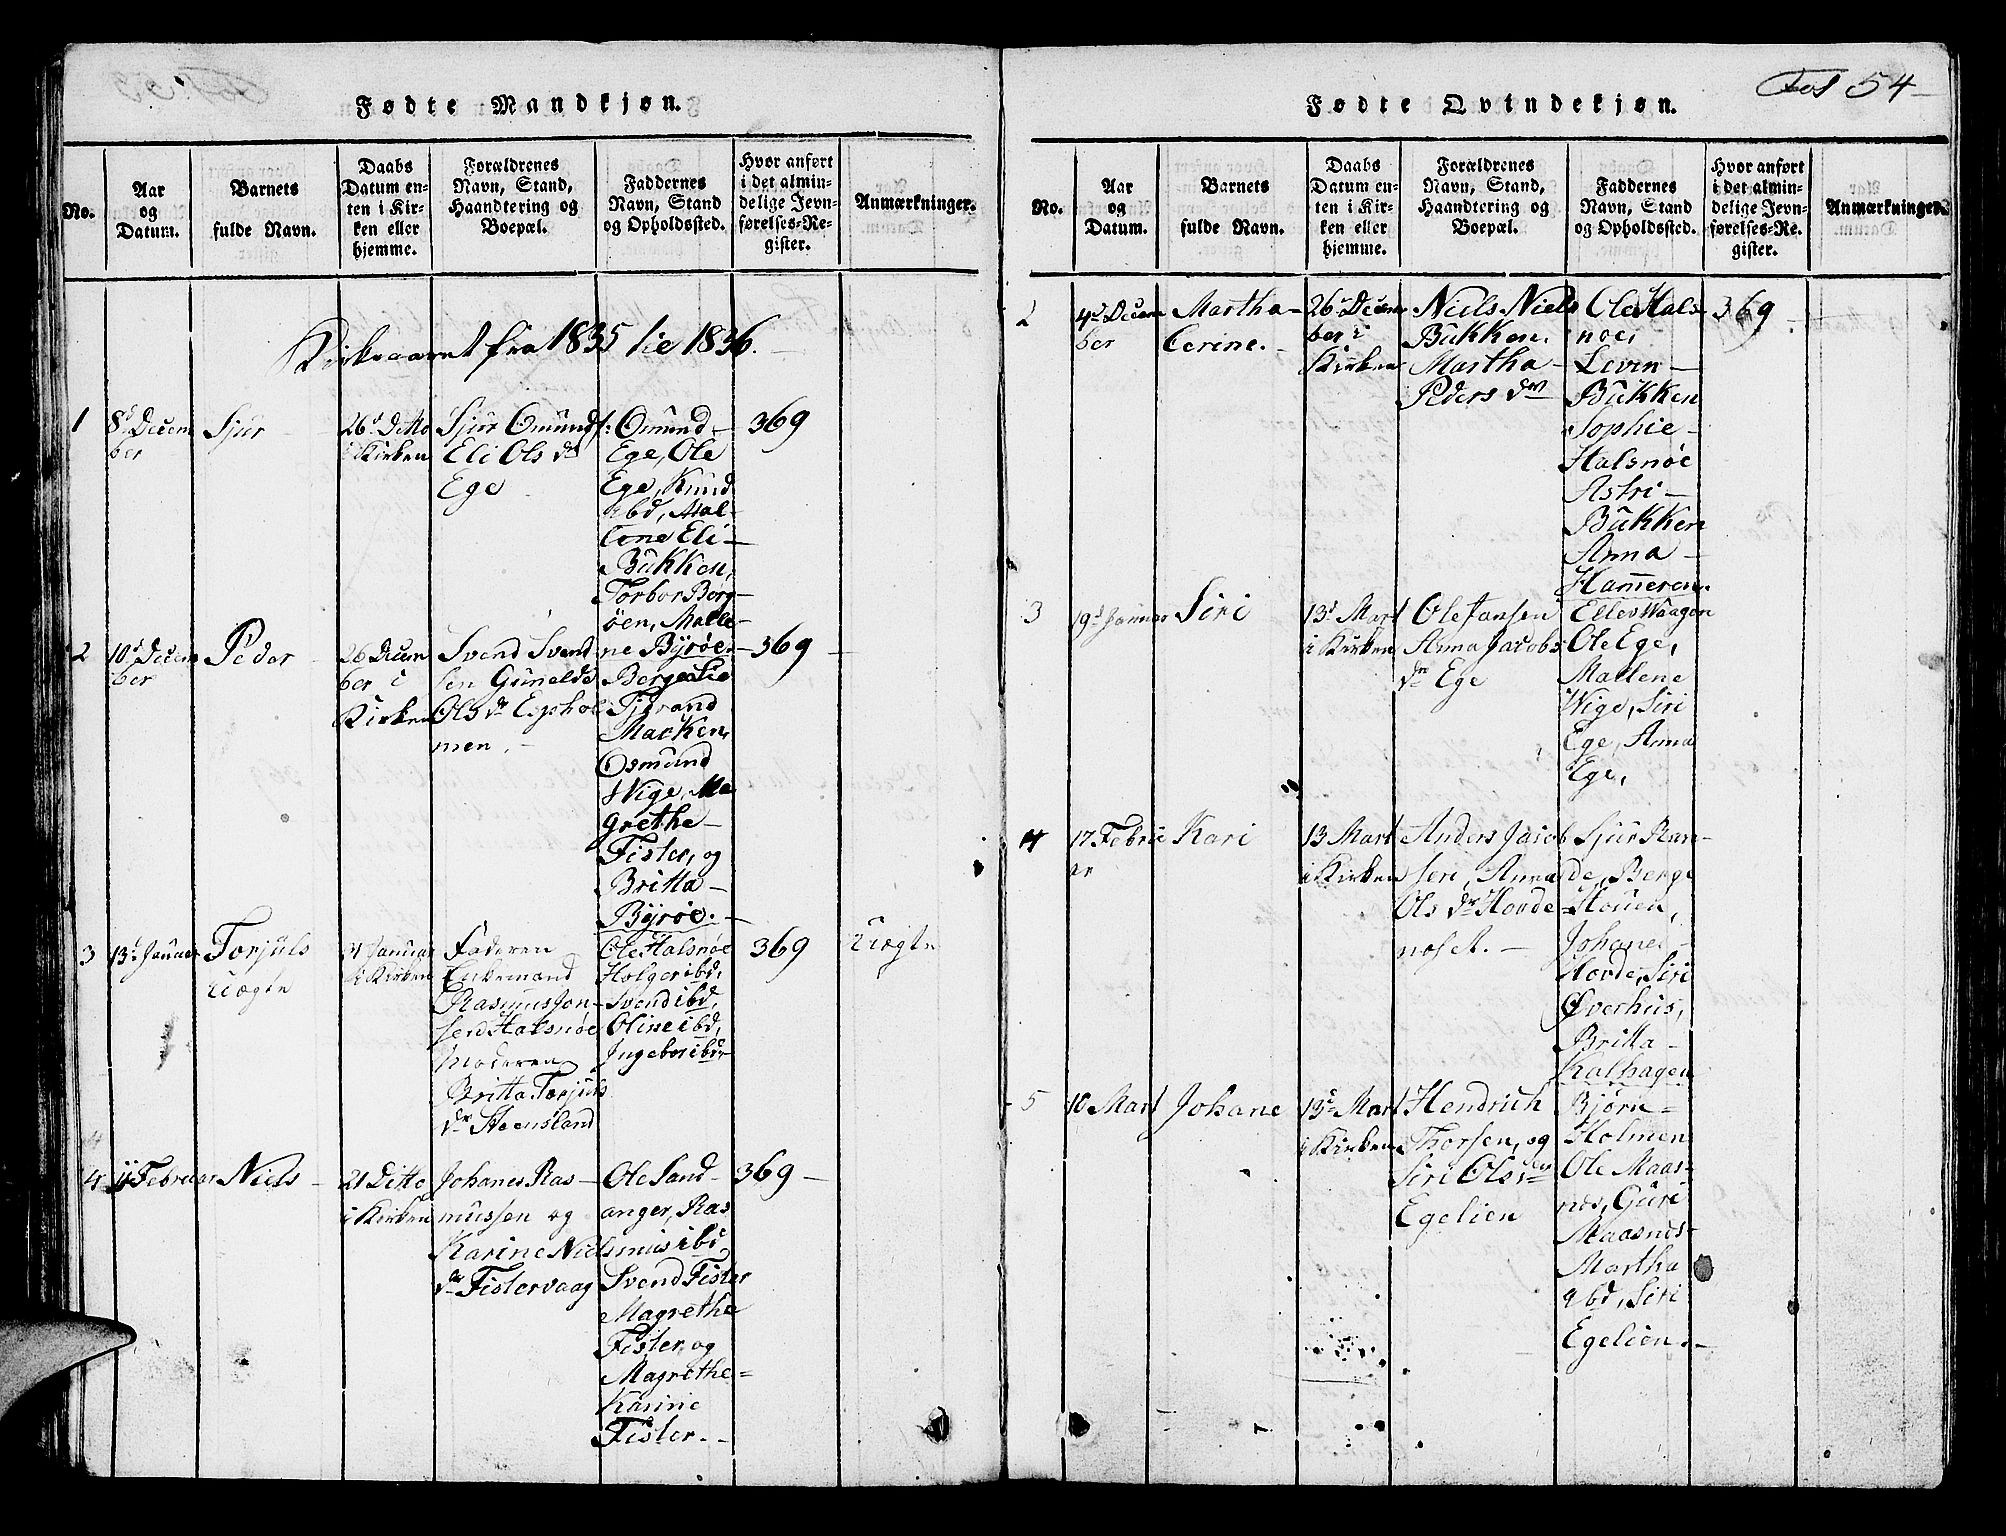 Fødte Mandkjøn.
No.
Aar
og
Datum.
Barnets
fulde Navn.
Daabs
Datum en-
ten i Kir-
ken eller
hjemme.
Forældrenes
Navn, Stand,
Haandtering og
Boepæl.
Faddernes
Navn, Stand
og Opholdssted.
Hvor anført
i det almin-
delige Jevn-
førelses-Re-
gister.
Anmærkninger.
Kirkeaaret fra 1835 til 1836.
1
8d Decem
ber
Sjur
26d Ditto
i Kirken
Sjur Omunds:
Eli Ols dr
Ege
Omund
Ege, Ole
Ege, Knud
ibd, Mal-
Cone Eli
Bükken,
Torbor Berg-
öen, Malle-
ne Byröe.
369
2
10d Decem
ber
Peder
26 Decem
ber i
Kirken
Svend Svend
sen Gunelde
Ols dr Egshol
men.
Berge Lie
Tjerand
Macken,
Osmund
Wige, Ma
grethe
Fister, og
Britta
Byröe.
369
3
13d Januar
Torjuls
Uægte
31 Januar
i Kirken
Faderen
Enkemand
Rasmus Jon-
sen Halsnöe
Moderen
Britta Torjuls
dr Steensland
Ole Halsnöe
Holger ibd,
Svend ibd,
Oline ibd,
Ingebor ibd
369
Uægte
4
11 Februar
Niels
21 Ditto
i Kirken
Johanes Ras-
mussen og
Karine Niels
dr Fistervaag
Ole Sand-
anger, Ras
mus ibd,
Svend Fister
Magrethe
Fister, og
Magrethe
Karine
Fister.
369
Fol 54
Fødte Qvindekjøn.
No.
Aar
og
Datum.
Barnets
fulde Navn.
Daabs
Datum en-
ten i Kir-
ken eller
hjemme.
Forældrenes
Navn, Stand,
Haandtering og
Boepæl.
Faddernes
Navn, Stand
og Opholdssted.
Hvor anført
i det almin-
delige Jevn-
førelses-Re-
gister.
Anmærkninger.
2
4d Decem
ber
Martha
Cerine.
26d Decem
ber i
Kirken
Niels Niels
Bükken.
Martha
Peders dr
Ole Hals
noe,
Leven
Bükken
Sophie
Halsnöe
Astri
Bükken
Anna
Hameren.
369
3
19d Januar
Siri
13d Mart
i Kirken
Ole Jansen
Anna Jacobs
dr Ege
Ellev Waagen
Ole Ege,
Mallene
Wige, Siri
Ege, Anna
Ege,
4
17 Febru
ar
Kari
13 Mart
i Kirken
Anders Jacob
sen, Anna
Ols dr Horde
noset.
Sjur Ran-
de, Berge
Houen,
Johanes
Horde, Siri
Överhus,
Britta
Kalhagen
5
10 Mart
Johane
13d Mart
i Kirken
Hendrich
Thorsen, og
Siri Ols dr
Egelien
Björn
Holmen
Ole Maas-
nes, Guri
Maasnes
Martha
ibd, Siri
Egelien.